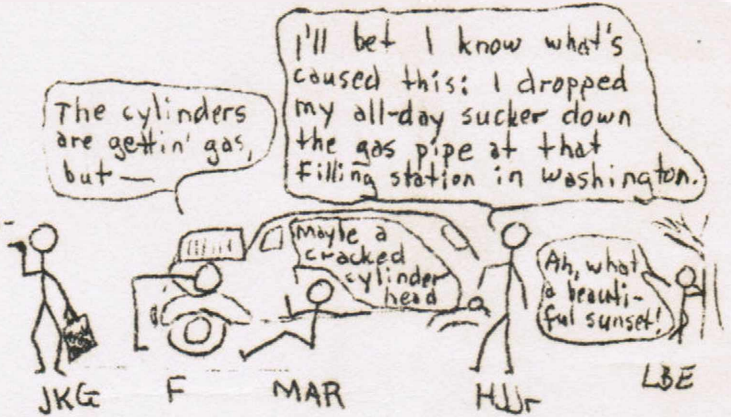 The cylinders
are gettin' gas,
but —
I'll bet I know what's
caused this: I dropped
my all-day sucker down
the gas pipe at that
filling station in Washington.
Maybe a
cracked
cylinder
head
Ah, what
a beauti-
ful sunset!
JKG F MAR HJJr LBE